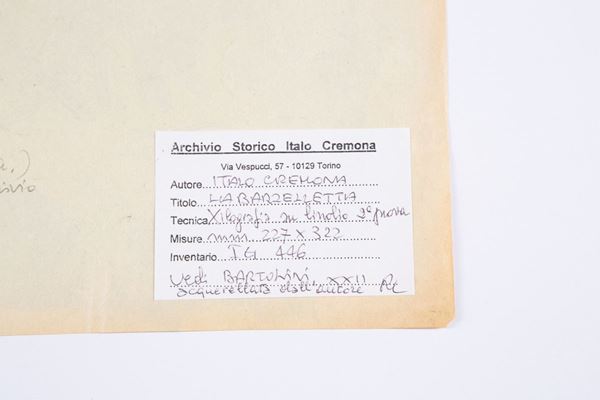 a.)
Archivio Storico Italo Cremona
Via Vespucci, 57 - 10129 Torino
Autore ITALO CREMONA
Titolo LA BARZELLETTA
Tecnica Xilografia su linolio 2ª prova
Misure mm 227 x 322
Inventario TG 446
Vedi BARTOLINI, XXII
acquerellata dall'autore